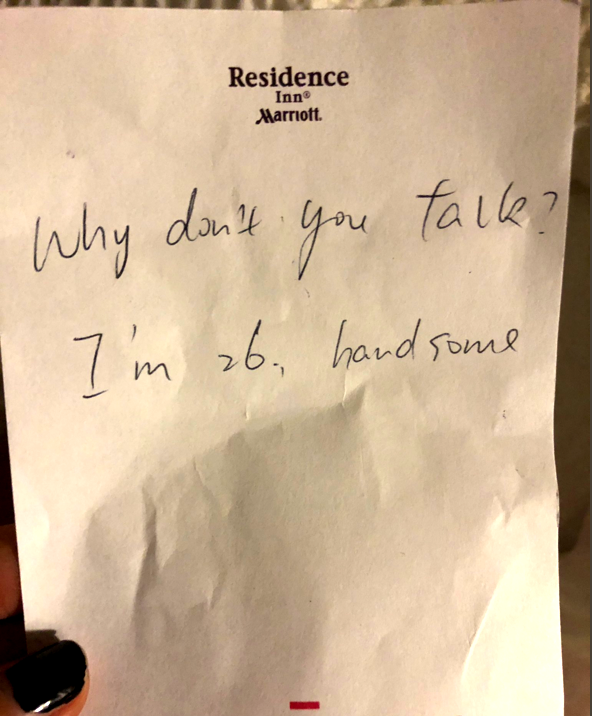 Residence
Inn®
Marriott.
Why don't you talk?
I'm 26, handsome